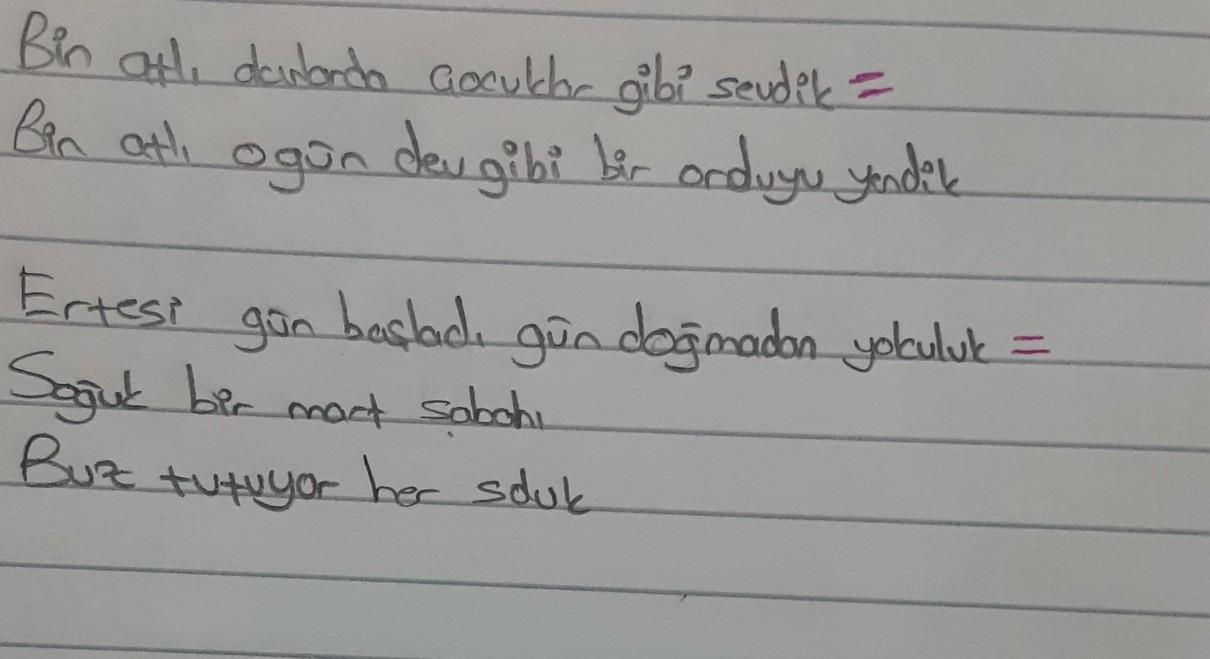 Bin atlı akınlarda çocuklar gibi sevdik =
Bin atlı ogün dev gibi bir orduyu yendik
Ertesi gün başladı gün doğmadan yolculuk =
Soğuk bir mart sabahı
Buz tutuyor her soluk